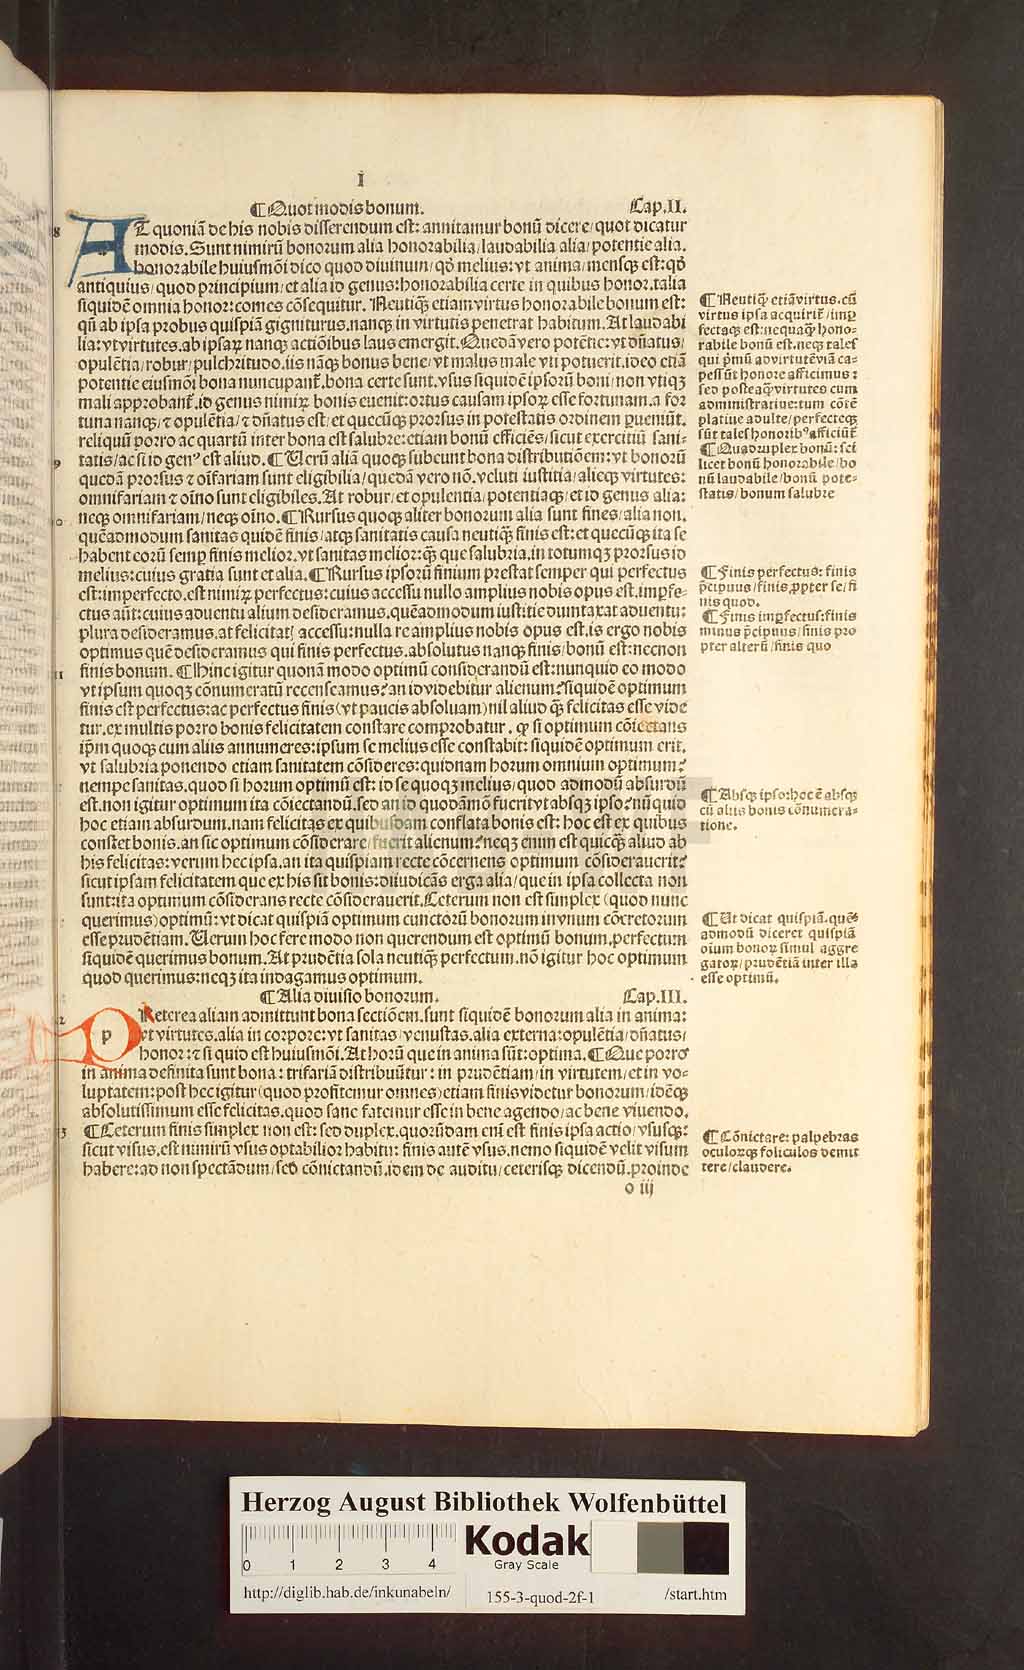 I
¶Quot modis bonum. Cap.II.
8 AT quoniā de his nobis disserendum est: annitamur bonū dicere/quot dicatur
modis. Sunt nimirū bonorum alia honorabilia/laudabilia alia/potentie alia.
honorabile huiusmōi dico quod diuinum/qđ melius: vt anima/mensqꝫ est: qđ
antiquius/quod principium/et alia id genus: honorabilia certe in quibus honor. talia
siquidē omnia honor: comes cōsequitur. Neutiqꝫ etiam virtus honorabile bonum est:
qñ ab ipsa probus quispiā gigniturus. nanqꝫ in virtutis penetrat habitum. At laudabi
lia: vt virtutes. ab ipsaꝝ nanqꝫ actiōibus laus emergit. Quedā vero potētie: vt dñatus/
opulētia/robur/pulchritudo. iis nāqꝫ bonus bene/vt malus male vti potuerit. ideo etiā
potentie eiusmōi bona nuncupant᷑. bona certe sunt. vsus siquidē ipsorū boni/non vtiqꝫ
mali approbant᷑. id genus nimiꝝ bonis euenit: ortus causam ipsoꝝ esse fortunam. a for
tuna nanqꝫ/⁊ opulētia/⁊ dñatus est/et quecūqꝫ prorsus in potestatis ordinem ꝑueniūt.
reliquū porro ac quartū inter bona est salubre: etiam bonū efficiēs/sicut exercitiū sani-
9 tatis/ac si id genꝰ est aliud. ¶Uerū aliā quoqꝫ subeunt bona distributiōem: vt bonorū
quedā prorsus ⁊ oīfariam sunt eligibilia/quedā vero nō. veluti iustitia/alieqꝫ virtutes:
omnifariam ⁊ oīno sunt eligibiles. At robur/et opulentia/potentiaqꝫ/et id genus alia:
10 neqꝫ omnifariam/neqꝫ oīno. ¶Rursus quoqꝫ aliter bonorum alia sunt fines/alia non.
quēadmodum sanitas quidē finis/atqꝫ sanitatis causa neutiqꝫ finis est: et quecūqꝫ ita se
habent eorū semꝑ finis melior. vt sanitas melior: qꝫ que salubria. in totumqꝫ prorsus id
melius: cuius gratia sunt et alia. ¶Rursus ipsorū finium prestat semper qui perfectus
est: imperfecto. est nimiꝝ perfectus: cuius accessu nullo amplius nobis opus est. imꝑfe-
ctus aūt: cuius aduentu alium desideramus. quēadmodum iustitie duntaxat aduentu:
plura desideramus. at felicitat᷒ accessu: nulla re amplius nobis opus est. is ergo nobis
optimus quē desideramus qui finis perfectus. absolutus nanqꝫ finis/bonū est: necnon
11 finis bonum. ¶Hinc igitur quonā modo optimū considerandū est: nunquid eo modo
vt ipsum quoqꝫ cōnumeratū recenseamus? an id videbitur alienum? siquidē optimum
finis est perfectus: ac perfectus finis (vt paucis absoluam) nil aliud qꝫ felicitas esse vide
tur. ex multis porro bonis felicitatem constare comprobatur. qꝫ si optimum cōiectans
ip̄m quoqꝫ cum aliis annumeres: ipsum se melius esse constabit: siquidē optimum erit.
vt salubria ponendo etiam sanitatem cōsideres: quidnam horum omnium optimum?
nempe sanitas. quod si horum optimū est: id se quoqꝫ melius/quod admodū absurdū
est. non igitur optimum ita cōiectandū. sed an id quodāmō fuerit vt absqꝫ ipso? nū quid
hoc etiam absurdum. nam felicitas ex quibusdam conflata bonis est: hoc est ex quibus
constet bonis. an sic optimum cōsiderare/fuerit alienum? neqꝫ enim est quicqꝫ aliud ab
his felicitas: verum hec ipsa. an ita quispiam recte cōcernens optimum cōsiderauerit?
sicut ipsam felicitatem que ex his sit bonis: diiudicās erga alia/que in ipsa collecta non
sunt: ita optimum cōsiderans recte cōsiderauerit. Ceterum non est simplex (quod nunc
querimus) optimū: vt dicat quispiā optimum cunctorū bonorum in vnum cōcretorum
esse prudētiam. Uerum hoc fere modo non querendum est optimū bonum. perfectum
siquidē querimus bonum. At prudētia sola neutiqꝫ perfectum. nō igitur hoc optimum
quod querimus: neqꝫ ita indagamus optimum.
¶Alia diuisio bonorum. Cap.III.
12 PReterea aliam admittunt bona sectiōem. sunt siquidē bonorum alia in anima:
vt virtutes. alia in corpore: vt sanitas/venustas. alia externa: opulētia/dñatus/
honor: ⁊ si quid est huiusmōi. At horū que in anima sūt: optima. ¶Que porro
in anima definita sunt bona: trifariā distribuūtur: in prudētiam/in virtutem/et in vo-
luptatem: post hec igitur (quod profitemur omnes) etiam finis videtur bonorum/idēqꝫ
absolutissimum esse felicitas. quod sane fatemur esse in bene agendo/ac bene viuendo.
13 ¶Ceterum finis simplex non est: sed duplex. quorūdam enī est finis ipsa actio/vsusqꝫ:
sicut visus. est nimirū vsus optabilior habitu: finis autē vsus. nemo siquidē velit visum
habere: ad non spectādum/sed cōnictandū. idem de auditu/ceterisqꝫ dicendū. proinde
o iij
¶Neutiqꝫ etiā virtus. cū
virtus ipsa acquirit᷑/imꝑ
fectaqꝫ est: nequaqꝫ hono-
rabile bonū est. neqꝫ tales
qui pͥmū ad virtutē viā ca-
pessūt honore afficimus:
sed posteaqꝫ virtutes cum
administratiue: tum cōtē
platiue adulte/perfecteqꝫ
sūt tales honoribꝰ afficiūt᷑
¶Quadruplex bonū: sci
licet bonū honorabile/bo
nū laudabile/bonū pote-
statis/bonum salubre
¶Finis perfectus: finis
p̄cipuus/finis ꝓpter se/fi
nis quod.
¶Finis imꝑfectus: finis
minus p̄cipuus/finis pro
pter alterū/finis quo
¶Absqꝫ ipso: hoc ē absqꝫ
cū aliis bonis cōnumera-
tione.
¶Ut dicat quispiā. quē
admodū diceret quispiā
oīum bonoꝝ simul aggre
gatoꝝ/prudētiā inter illa
esse optimū.
¶Cōnictare: palpebras
oculorūqꝫ foliculos demit
tere/claudere.
Herzog August Bibliothek Wolfenbüttel
0 1 2 3 4
Kodak
Gray Scale
http://diglib.hab.de/inkunabeln/ 155-3-quod-2f-1 /start.htm